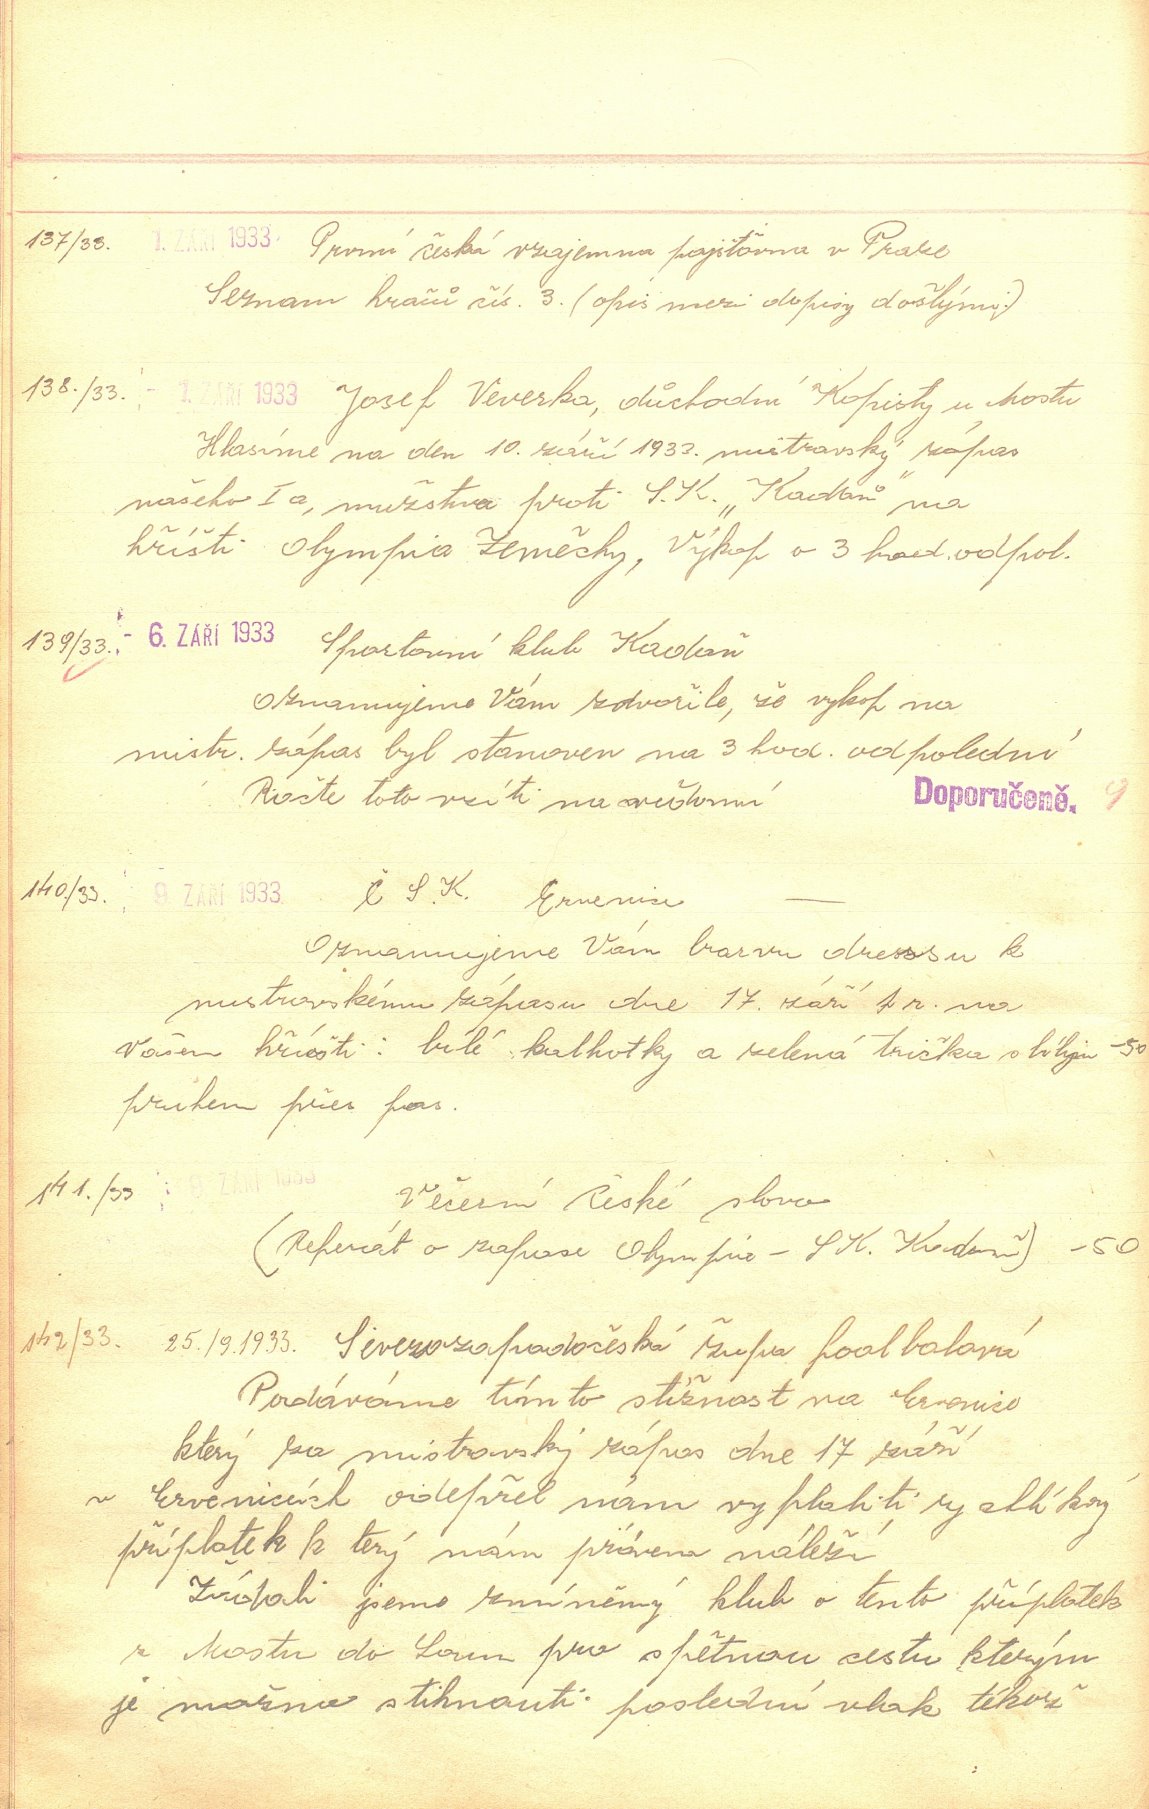 137/33. 1. ZÁŘÍ 1933 První česká vzajemna pojišťovna v Praze
Seznam hračů čís. 3. (opis mezi dopisy došlými)
138./33. - 1. ZÁŘÍ 1933 Josef Veverka, důchodní Kopisty u Mostu
Hlasíme na den 10. září 1933. mistravský zápas
našeho I a, mužstva proti S.K. „Kadaň" na
hřišti Olympia Zeměchy, Výkop o 3 hod. odpol.
139/33. - 6. ZÁŘÍ 1933 Sportovní klub Kadaň
Oznamujeme Vám zdvořile, že vykop na
mistr. zápas byl stanoven na 3 hod. odpolední
Račte toto vzíti na vědomí Doporučeně. 9
140./33. 9. ZÁŘÍ 1933 Č S.K. Ervenice —
Oznamujeme Vám barvu dressu k
mistravskému zápasu dne 17. září t r. na
Vašem hříšti: bílé kalhotky a zelená trička s bílým -50
pruhem přes pas.
141./33 9. ZÁŘÍ 1933 Večerní České slovo
(Referát o zapase Olympia - S K. Kadaň) -50
142/33. 25./9.1933. Severozapadočeská župa footbalová
Podáváme tímto stížnost na Ervenice
který za mistravský zápas dne 17 září
v Ervenicích odepřel nám vyplatiti rychlíkový
příplatek k terý nám právem náleží
Žádali jsme zmíněný klub o tento příplatek
z Mostu do Loun pro spětnou cestu kterým
je možno stihnouti poslední vlak téhož